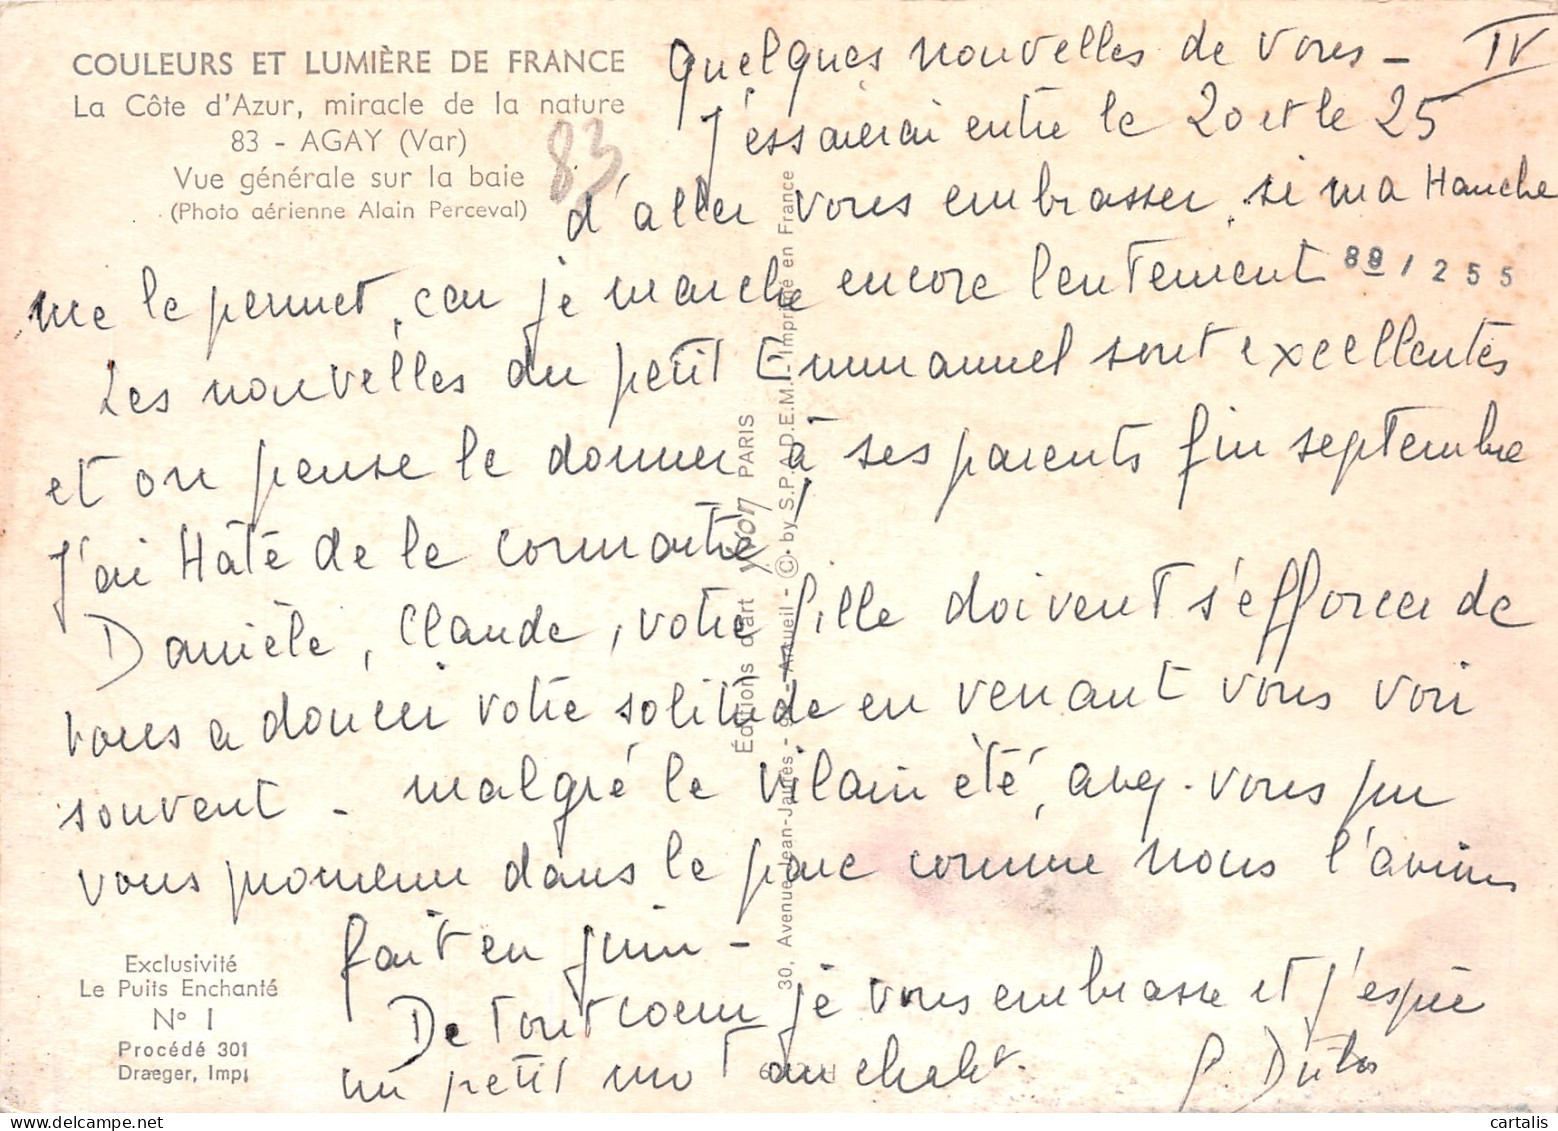 COULEURS ET LUMIÈRE DE FRANCE
La Côte d'Azur, miracle de la nature
83 - AGAY (Var)
Vue générale sur la baie
(Photo aérienne Alain Perceval)
83
IV
Quelques nouvelles de vous -
J'essaierai entre le 20 et le 25
d'aller vous embrasser, si ma Hanche
me le permet, car je marche encore lentement
89 / 255
Les nouvelles du petit Emmanuel sont excellentes
et on pense le donner à ses parents fin septembre
J'ai Hâte de le connaître!
Danièle, Claude, votre fille doivent s'efforcer de
vous adoucir votre solitude en venant vous voir
souvent - malgré le vilain été, avez-vous pu
vous promener dans le parc comme nous l'avions
fait en juin -
De tout coeur je vous embrasse et j'espère
un petit mot
Exclusivité
Le Puits Enchanté
N° 1
Procédé 301
Draeger, Imp.
Éditions d'art yvon PARIS
30, Avenue Jean-Jaurès - 94 - Arcueil - © by S.P.A.D.E.M. - Imprimé en France
cartalis